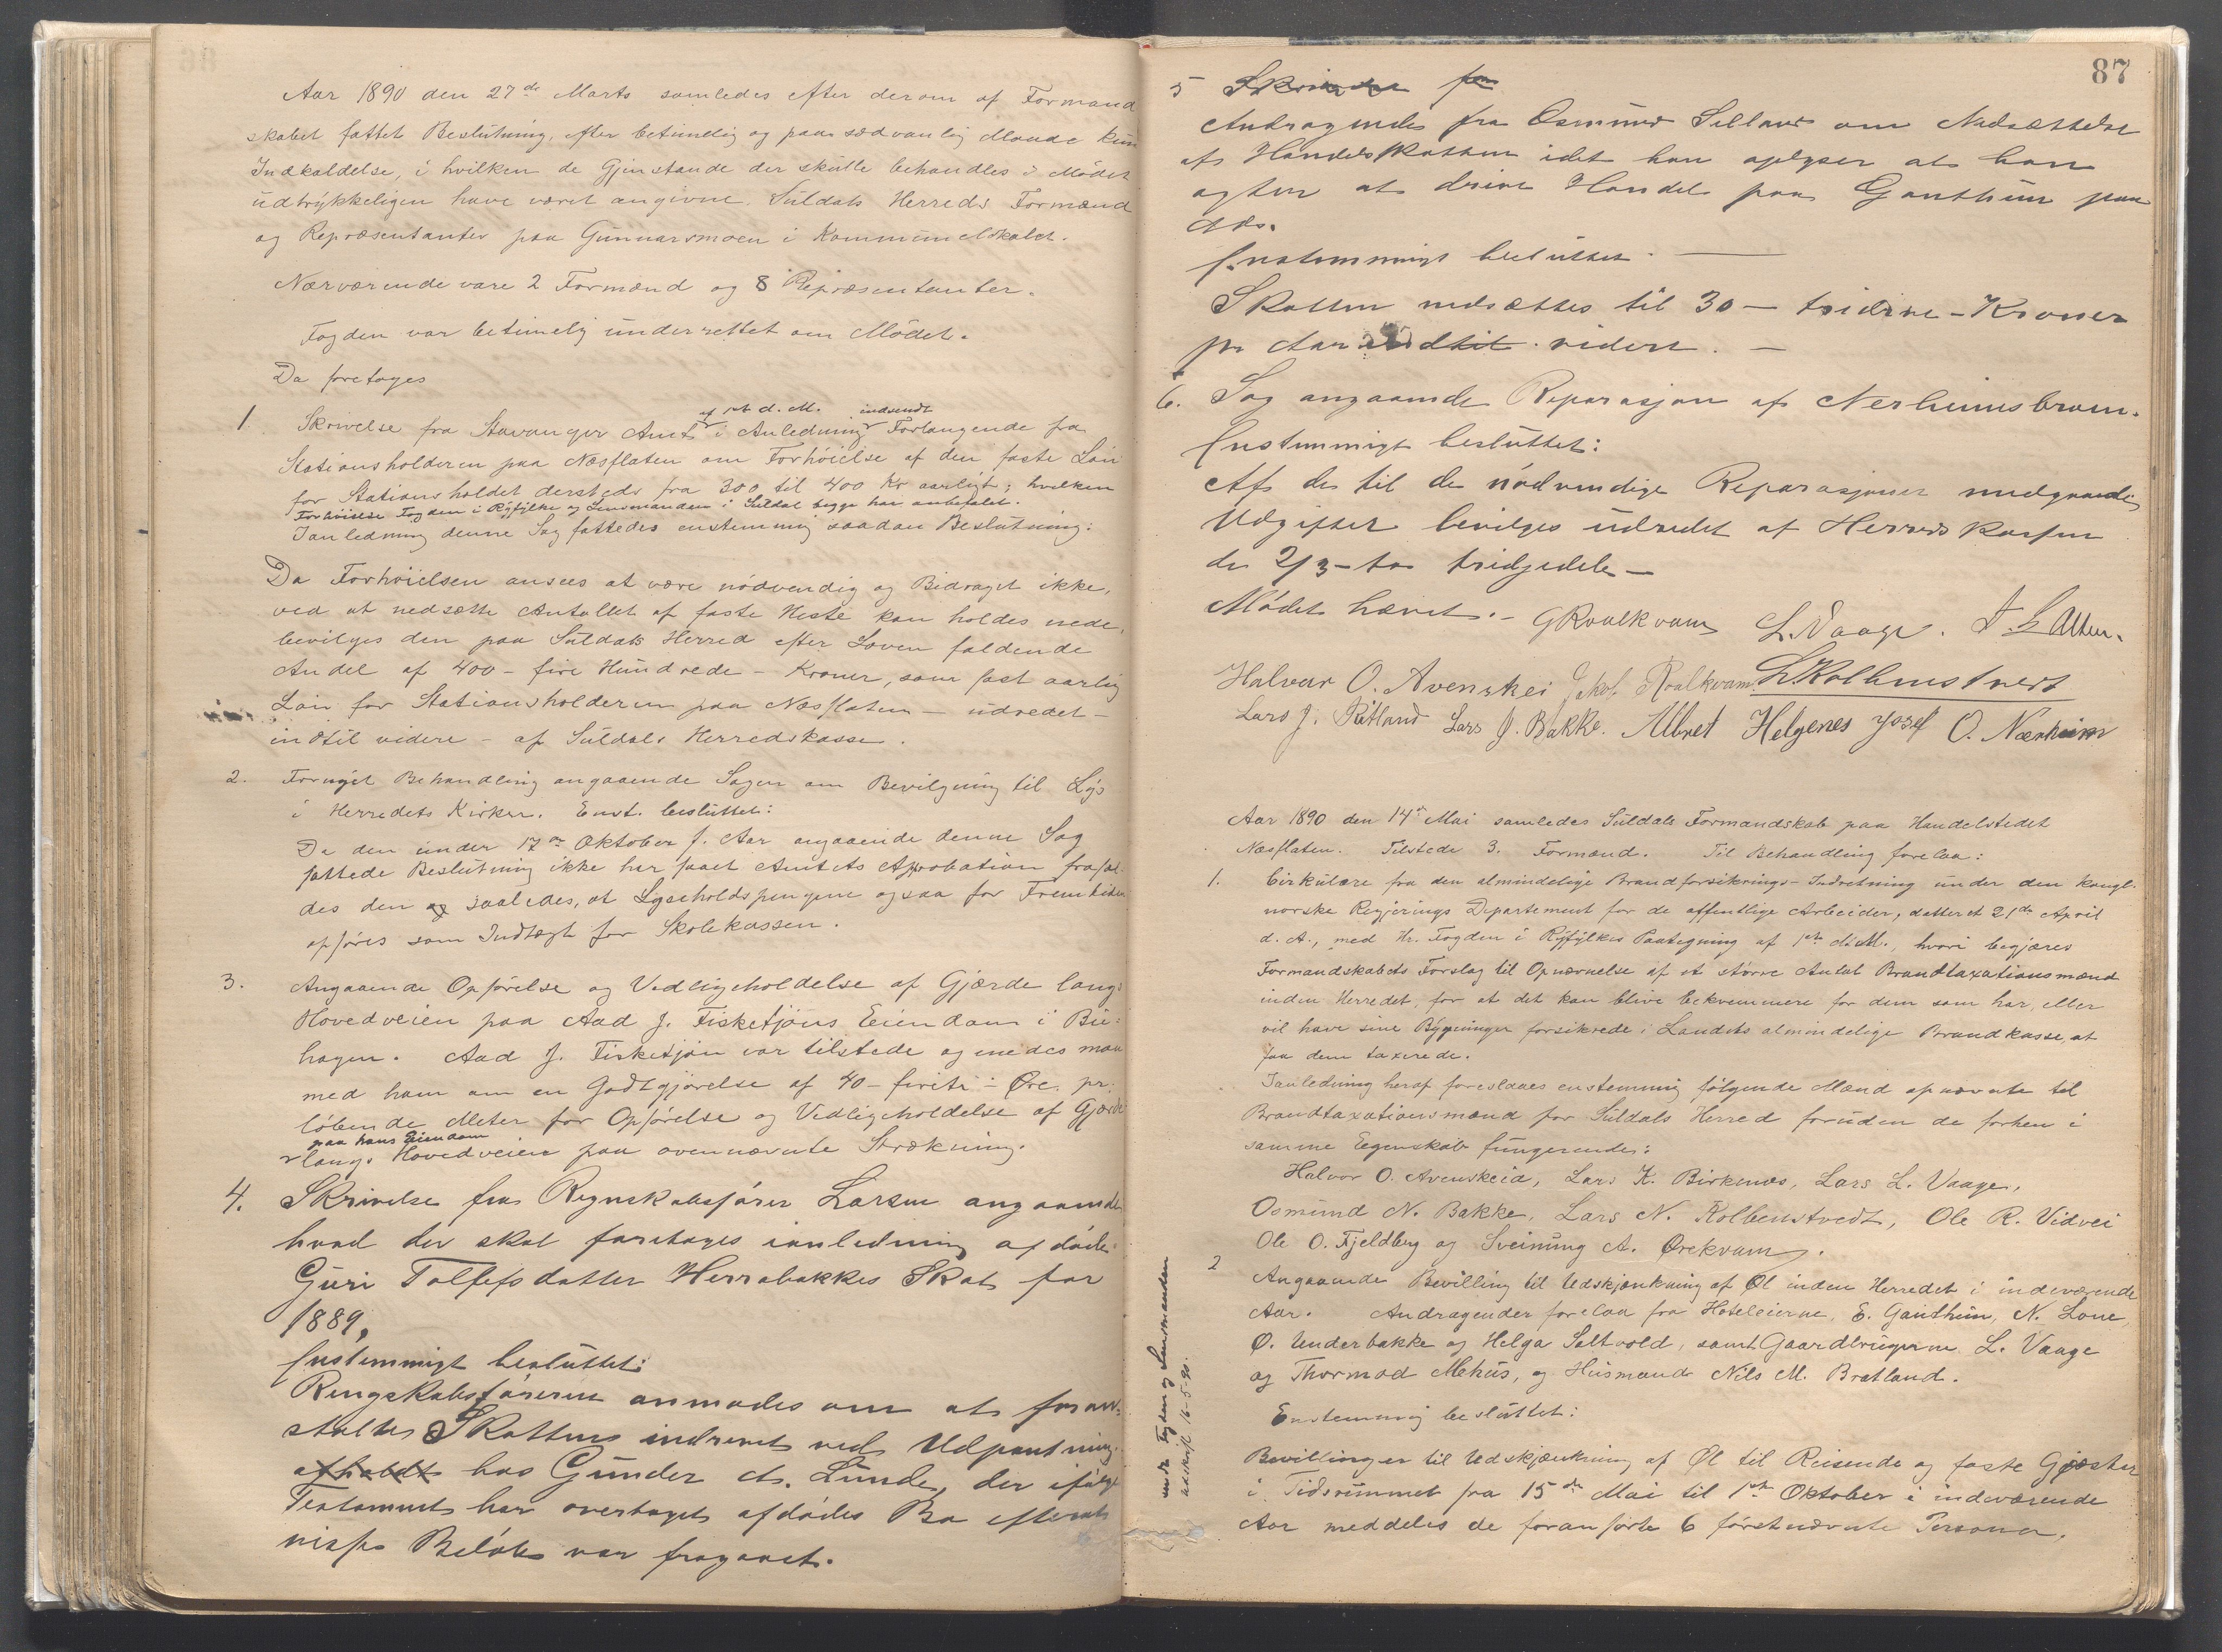 Aar 1890 den 27de Marts samledes efter derom af Formand
skabet fattet Beslutning, efter betimelig og paa sædvanlig Maade kun
Indkaldelse, i hvilken de Gjenstande der skulle behandles i Mödet
udtrykkeligen have været angivne. Suldals Herreds Formænd
og Repræsentanter paa Gunnarsmoen i Kommunelokalet.
Nærværende vare 2 Formænd og 8 Repræsentanter.
Fogden var betimelig underrettet om Mödet.
Da foretoges
af 1ste d. M. indsendt
1 Skrivelse fra Stavanger Amt i Anledning Forlangende fra
Stationsholderen paa Næsflaten om Forhöielse af den faste Lön
for Stationsholdet dersteds fra 300 til 400 Kr aarligt; hvilken
Forhöielse Fogden i Ryfylke og Lensmanden i Suldal begge har anbefalet.
Ianledning denne Sag fattedes enstemmig saadan Beslutning:
Da Forhöielsen ansees at være nödvendig og Bidraget ikke,
ved at nedsætte Antallet af faste Heste kan holdes nede,
bevilges den paa Suldals Herred efter Loven faldende
Andel af 400 - fire Hundrede - Kroner, som fast aarlig
Lön for Stationsholderen paa Næsflaten - udredet -
indtil videre - af Suldals Herredskasse.
2. Fornyet Behandling angaaende Sagen om Bevilgning til Lys
i Herredets Kirker. Enst. besluttet:
Da den under 17de Oktober f. Aar angaaende denne Sag
fattede Beslutning ikke har faaet Amtets Approbation frafal-
des den og saaledes, at Lyseholdspengene ogsaa for Fremtiden
opföres som Indtægt for Skolekassen.
3. Angaaende Opförelse og Vedligeholdelse af Gjærde langs
Hovedveien paa Aad J. Fisketjöns Eiendom i Bu-
hagen. Aad J. Fisketjön var tilstede og enedes man
med ham om en Godtgjörelse af 40 - firiti - Øre pr.
löbende Meter for Opförelse og Vedligeholdelse af Gjærde
paa hans Eiendom
langs Hovedveien paa ovennævnte Strækning.
4. Skrivelse fra Regnskabsförer Larsen angaaende
hvad der skal foretages ianledning afdöde
Guri Tollefsdatter Herrabakkes Skat for
1889,
Enstemmigt besluttet:
Rengskabsföreren anmodes om at foran-
staltes Skattens indrevet ved Udpantning
afholdt hos Gunder A. Lunde, der ifölge
Testament har overtaget afdödes Bo efterat
visse Belöb var fragaaet.
87
5 Skrivelse fra
Andragende fra Osmund Silland om Nedsættelse
af Handelsskatten idet han oplyser at han
agter at drive Handel paa Gauthun paa
Aas.
Enstemmigt besluttet.
Skatten nedsættes til 30 - tridive - Kroner
pr Aar indtil videre. -
6. Sag angaaende Reparasjon af Nerheimsbroen.
Enstemmigt besluttet:
Af de til de nödvendige Reparasjoner medgaaende
Udgifter bevilges udredet af Herredskassen
de 2/3 - to tridjedele -
Mödet hævet. - G Roalkvam L. Vaage.
Halvar O. Avenskei Jakob Roalkvam L. Kolbenstvedt
Lars J. Ritland Lars J. Bakke. Albret Helgenes Josef O. Nærheim
Aar 1890 den 14de Mai samledes Suldals Formandskab paa Handelstedet
Næsflaten. Tilstede 3. Formænd. Til Behandling forelaa:
1. Cirkulære fra den almindelige Brandforsikrings-Indretning under den kongl.
norske Regjerings Departement for de offentlige Arbeider, datteret 21de April
d. A., med Hr. Fogden i Ryfylkes Paategning af 1ste d. M., hvori begjæres
Formandskabets Forslag til Opnævnelse af et större Antal Brandtaxationsmænd
inden Herredet, for at det kan blive bekvemmere for dem som har, eller
vil have sine Bygninger forsikrede i Landets almindelige Brandkasse, at
faa dem taxerede.
Ianledning heraf foreslaaes enstemmig fölgende Mænd opnævnte til
Brandtaxationsmænd for Suldals Herred foruden de forhen i
samme Egenskab fungerende:
Halvor O. Avenskeid, Lars K. Birkenes, Lars L. Vaage,
Osmund N. Bakke, Lars N. Kolbenstvedt, Ole R. Vidvei
Ole O. Fjeldberg og Sveinung A. Ørekvam.
2 Angaaende Bevilling til Udskjænkning af Øl inden Herredet i indeværende
Aar. Andragender forelaa fra Hoteleierne, E. Gauthun, N. Lone,
Ø. Underbakke og Helga Saltvold, samt Gaardbrugerne L. Vaage
og Thormod Mehus, og Husmand Nils M. Bratland.
Enstemmig besluttet:
Bevillinger til Udskjænkning af Øl til Reisende og faste Gjæster
i Tidsrummet fra 15de Mai til 1ste Oktober i indeværende
Aar meddeles de foranförte 6 förstnævnte Personer.
sendt Fogden og Lensmanden
udskrift 16-5-90.